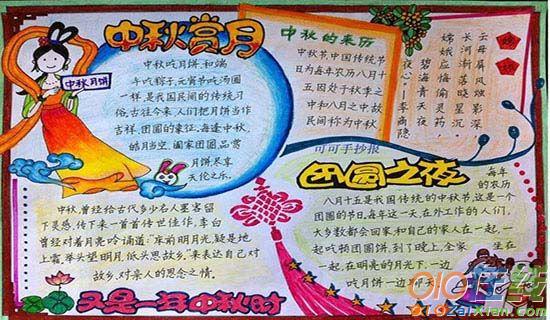 中秋赏月
中秋月饼
中秋吃月饼,和端
午吃粽子、元宵节吃汤圆
一样,是我国民间的传统习
俗。古往今来,人们把月饼当作
吉祥、团圆的象征,每逢中秋,
皓月当空,阖家团圆,品赏
月饼,尽享
天伦之乐。
中秋的来历
中秋节,中国传统节
日为每年农历八月十
五,因处于秋季之
中和八月之中,故
民间称为中秋
嫦娥
云母屏风烛影深
长河渐落晓星沉
嫦娥应悔偷灵药
碧海青天夜
夜心—李商隐
可可手抄报
团圆之夜
每年
的农历
八月十五是我国传统的中秋节,这是一个
团圆的节日,每年这一天,在外工作的人们,
大多数都会回家,和自己的家人在一起,一
起吃顿团圆饼,到了晚上,全家 坐在
一起,在明亮的月光下,一边
吃月饼一边聊天
中秋,曾经给古代多少名人墨客留
下灵感,传下来一首首传世佳作,李白
曾经对着月亮吟诵道:“床前明月光,疑是地
上霜,举头望明月,低头思故乡。”来表达自己对
故乡、对亲人的思念之情。
又是一年中秋时
010在线
x10zaixian.com